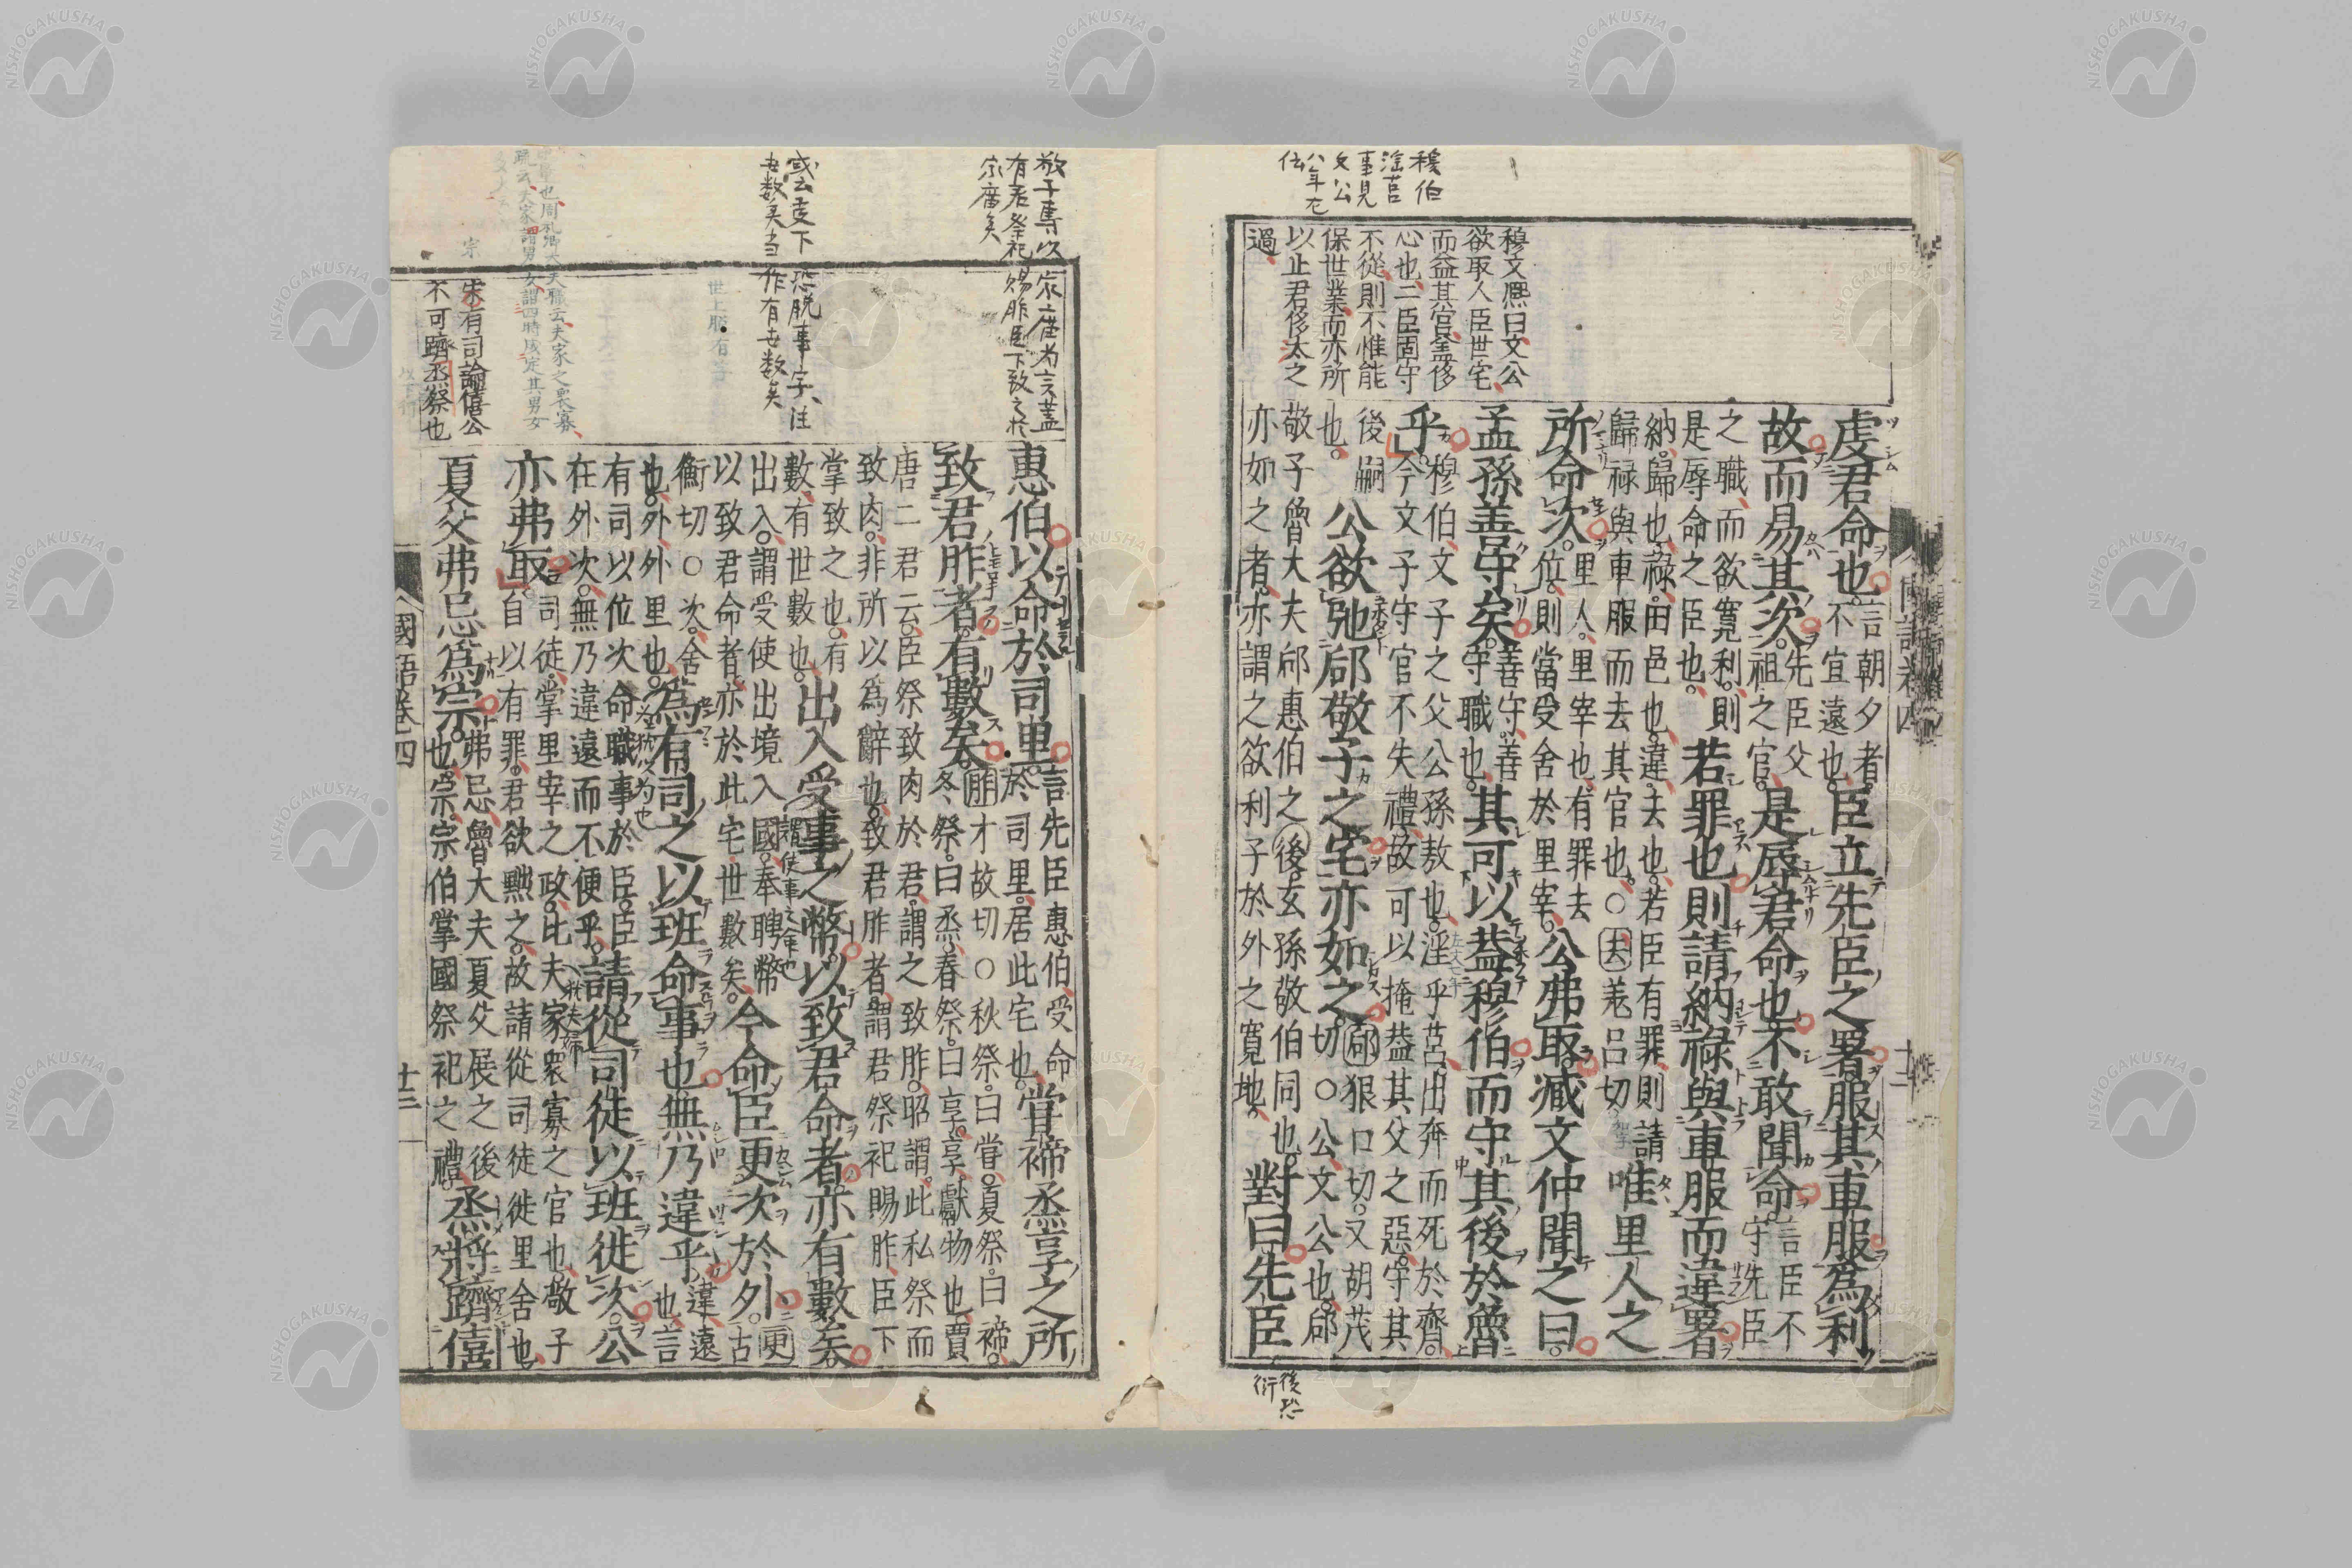 穆伯
淫莒
事見
文公
八年左
伝
穆文熈曰文公
欲取人臣世宅
而益其官蓋侈
心也二臣固守
不從則不惟能
保世業而亦所
以止君侈太之
過
虞君命也。言朝夕者。不宜遠也。臣立先臣之署服其車服為利
故而易其次。先臣父祖之官。是辱君命也。不敢聞命。言臣不守先臣
之職而欲寬利則是辱命之臣也。若罪也則請納祿與車服而違署
納歸也祿田邑也違去也若臣有罪則請歸祿與車服而去其官也。○去羌呂切。唯里人之
所命次。里人里宰也有罪去位則當受舍於里宰。公弗取。臧文仲聞之曰。
孟孫善守矣。善守善守職也。其可以蓋穆伯而守其後於魯
乎。穆伯文子之父公孫敖也。淫乎莒出奔而死於齊。今文子守官不失禮故可以掩蓋其父之惡。守其
後嗣也。公欲弛郈敬子之宅亦如之。郈狠口切。又胡茂切○公文公也郈
敬子魯大夫郈惠伯之後玄孫敬伯同也。亦如之者。亦謂之欲利子於外之寬地。對曰先臣
後恐
衍
國語卷四
十二
敬子専以宗廟为言蓋
有君祭祀賜胙臣下致之於
宗廟矣
或云受下恐脱事字、注
世数矣当作有世数矣
惠伯以命於司里。言先臣惠伯受命於司里。居此宅也。嘗禘烝享之所
致君胙者。有數矣。胙才故切○秋祭曰嘗。夏祭曰禘。冬祭。曰烝。春祭。曰享。享獻物也。賈
唐二君云。臣祭致肉於君。謂之致胙。昭謂此私祭而致肉。非所以為辭也。致君胙者。謂君祭祀賜胙臣下
掌致之也。有數有世數也。出入受事之幣以致君命者。亦有數矣。
出入。謂受使出境入國。奉聘幣以致君命者。亦於此宅世數矣。今命臣更次於外。更古
衡切○次舍也。外外里也。為有司之以班命事也無乃違乎。違遠也言
有司以位次命職事於臣。臣在外次。無乃違遠而不便乎。請從司徒以班徙次。公
亦弗取。司徒掌里宰之政。比夫家衆寡之官也敬子自以有罪。君欲黜之。故請從司徒徙里舍也
夏父弗忌為宗。弗忌魯大夫夏父展之後也。宗宗伯掌國祭祀之禮。烝將躋僖
宗
宋有司論僖公
不可躋丞祭也
國語卷四
十三